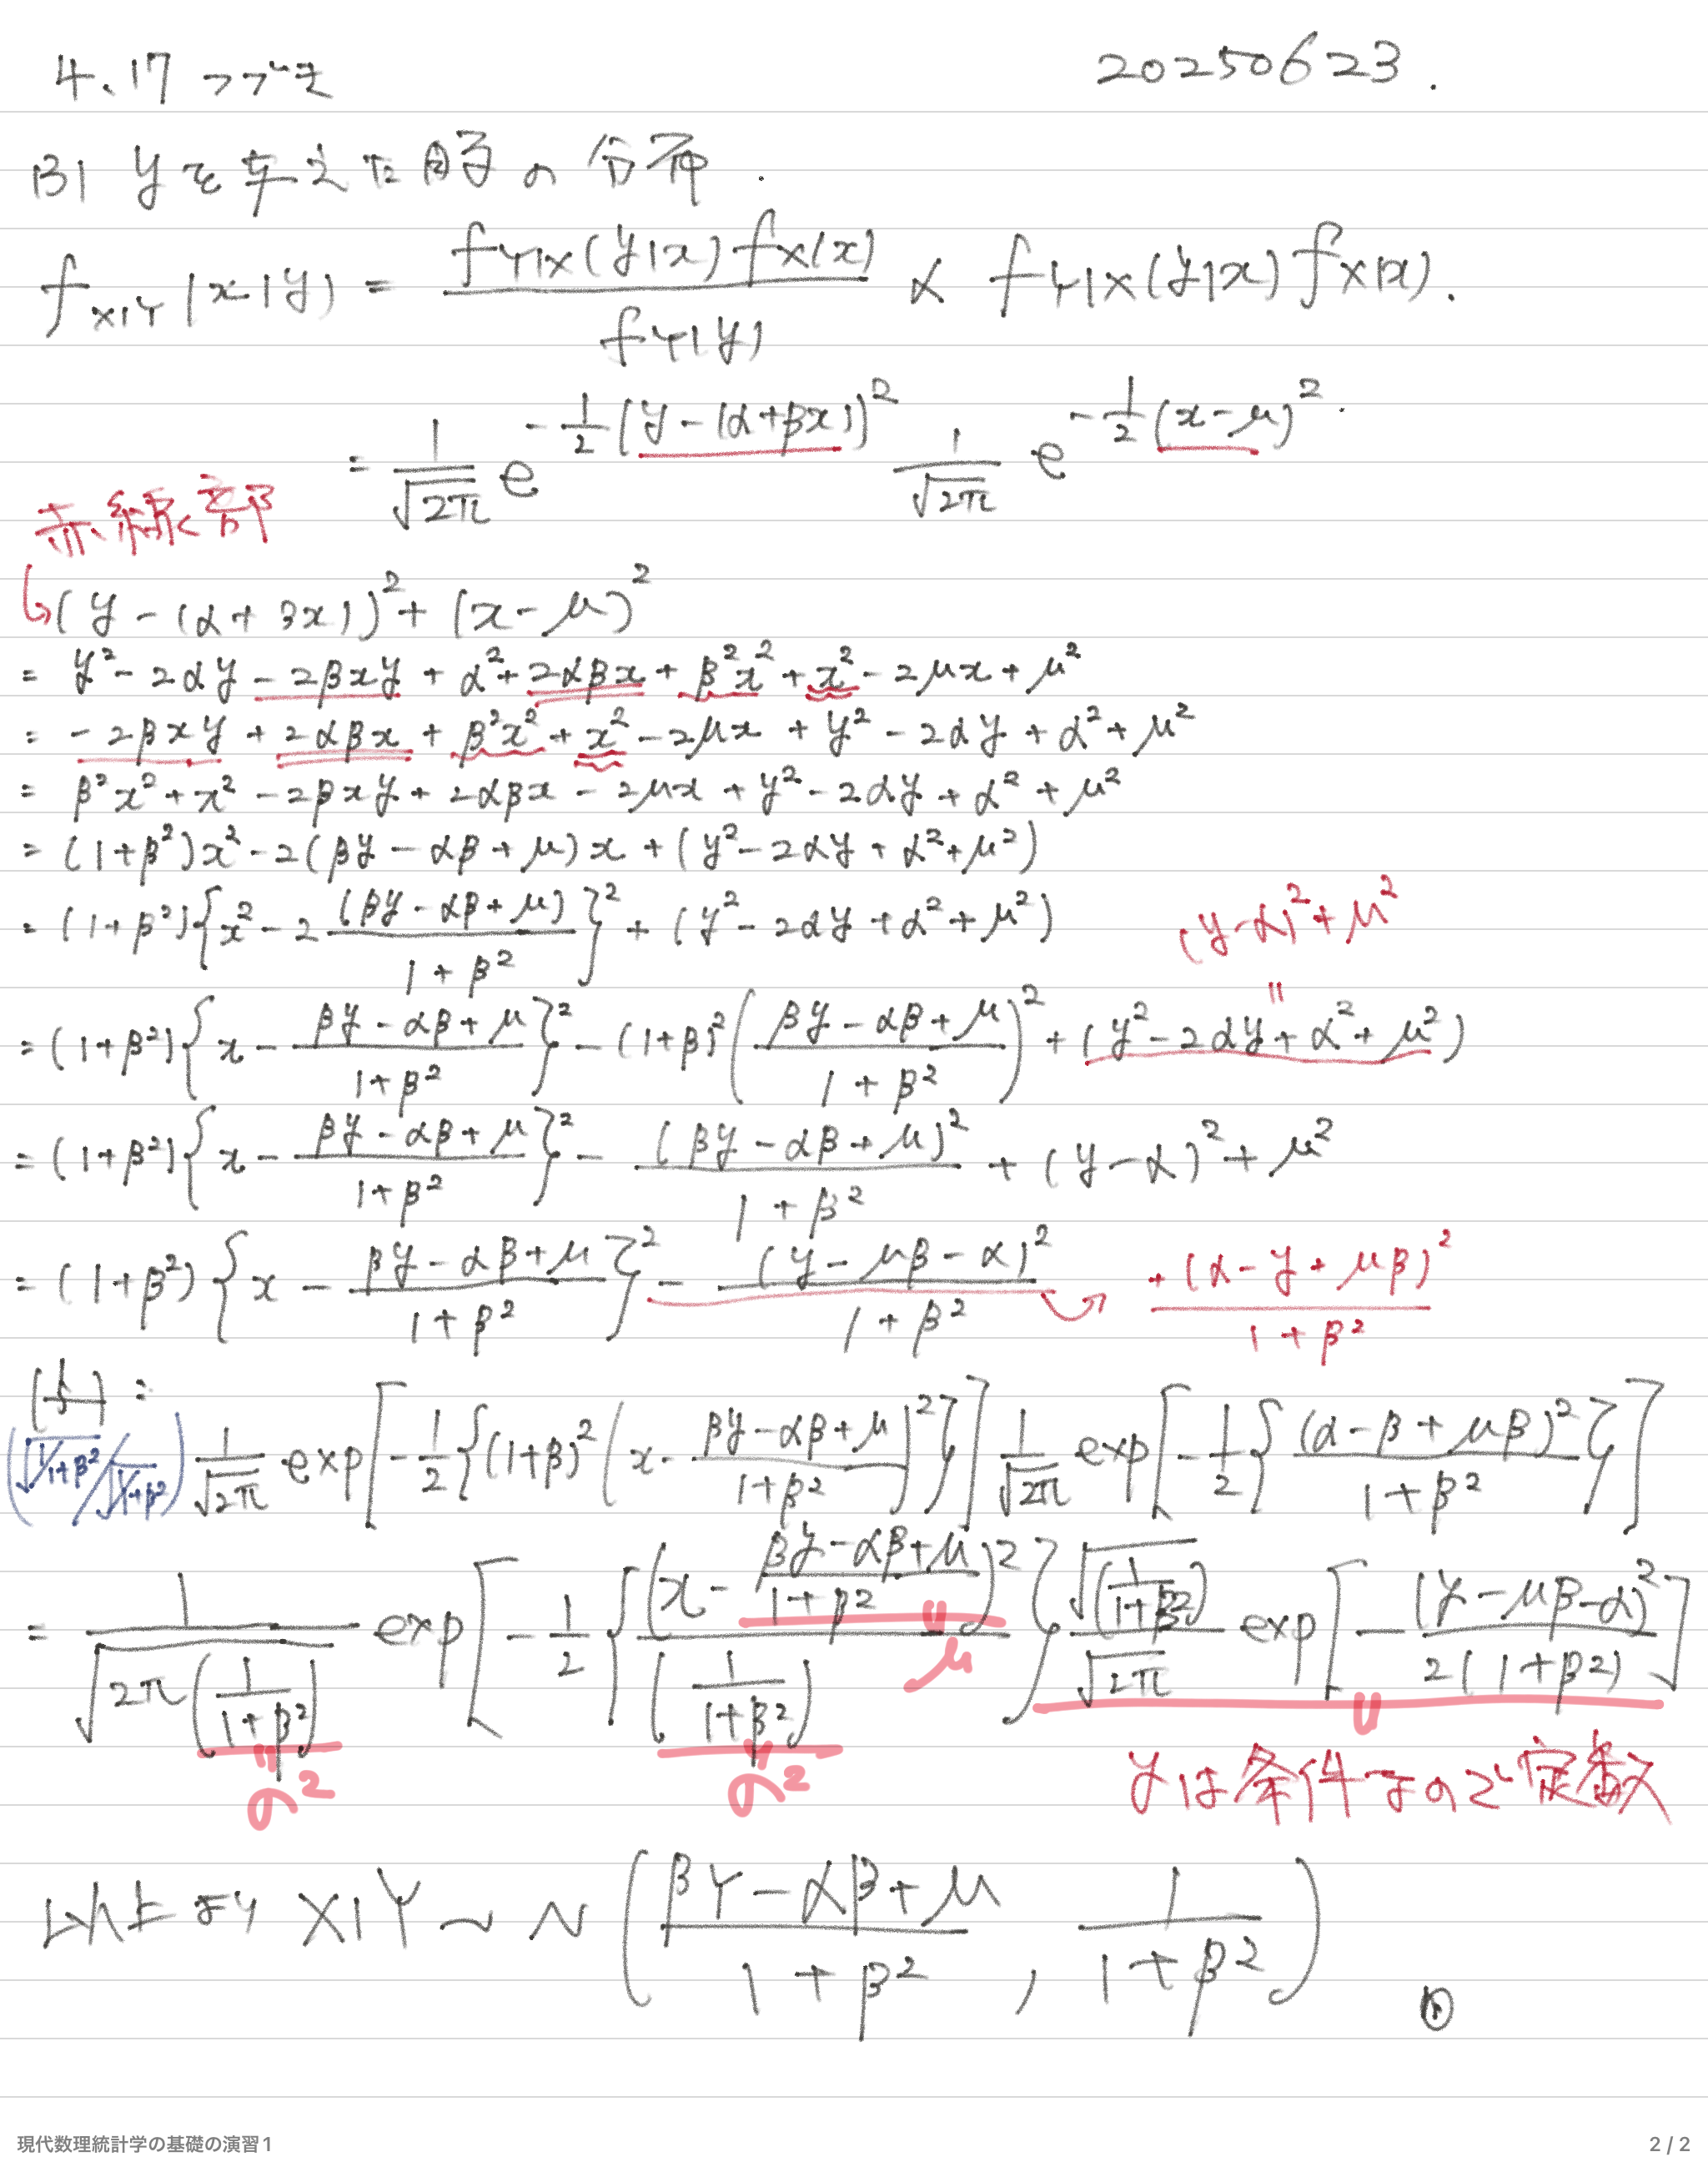 4.17 つづき 20250623.
(3) yを与えた時の分布.
f_{X|Y}(x|y) = \frac{f_{Y|X}(y|x) f_X(x)}{f_Y(y)} ∝ f_{Y|X}(y|x) f_X(x).
= \frac{1}{\sqrt{2π}} e^{-\frac{1}{2}(y-(α+βx))^2} \frac{1}{\sqrt{2π}} e^{-\frac{1}{2}(x-μ)^2}
赤線部
(y-(α+βx))^2 + (x-μ)^2
= y^2 - 2αy - 2βxy + α^2 + 2αβx + β^2x^2 + x^2 - 2μx + μ^2
= -2βxy + 2αβx + β^2x^2 + x^2 - 2μx + y^2 - 2αy + α^2 + μ^2
= β^2x^2 + x^2 - 2βxy + 2αβx - 2μx + y^2 - 2αy + α^2 + μ^2
= (1+β^2)x^2 - 2(βy - αβ + μ)x + (y^2 - 2αy + α^2 + μ^2)
= (1+β^2){x^2 - 2\frac{(βy - αβ + μ)}{1+β^2}}^2 + (y^2 - 2αy + α^2 + μ^2)
(y-α)^2 + μ^2
=
= (1+β^2){x - \frac{βy - αβ + μ}{1+β^2}}^2 - (1+β)^2(\frac{βy - αβ + μ}{1+β^2})^2 + (y^2 - 2αy + α^2 + μ^2)
= (1+β^2){x - \frac{βy - αβ + μ}{1+β^2}}^2 - \frac{(βy - αβ + μ)^2}{1+β^2} + (y-α)^2 + μ^2
= (1+β^2){x - \frac{βy - αβ + μ}{1+β^2}}^2 - \frac{(y - μβ - α)^2}{1+β^2} + \frac{(α - y + μβ)^2}{1+β^2}
(与) =
(\sqrt{1/1+β^2}/\sqrt{1/1+β^2}) \frac{1}{\sqrt{2π}} exp[-\frac{1}{2}{(1+β)^2(x - \frac{βy - αβ + μ}{1+β^2})^2}] \frac{1}{\sqrt{2π}} exp[-\frac{1}{2}{\frac{(α - β + μβ)^2}{1+β^2}}]
= \frac{1}{\sqrt{2π(\frac{1}{1+β^2})}} exp[-\frac{1}{2}{\frac{(x - \frac{βy - αβ + μ}{1+β^2})^2}{(\frac{1}{1+β^2})}} \frac{\sqrt{(\frac{1}{1+β^2})}}{\sqrt{2π}} exp[-\frac{(y - μβ - α)^2}{2(1+β^2)}]
μ
σ^2 σ^2
yは条件なので定数
以上より X|Y ~ N(\frac{βY - αβ + μ}{1+β^2}, \frac{1}{1+β^2})
現代数理統計学の基礎の演習1 2 / 2